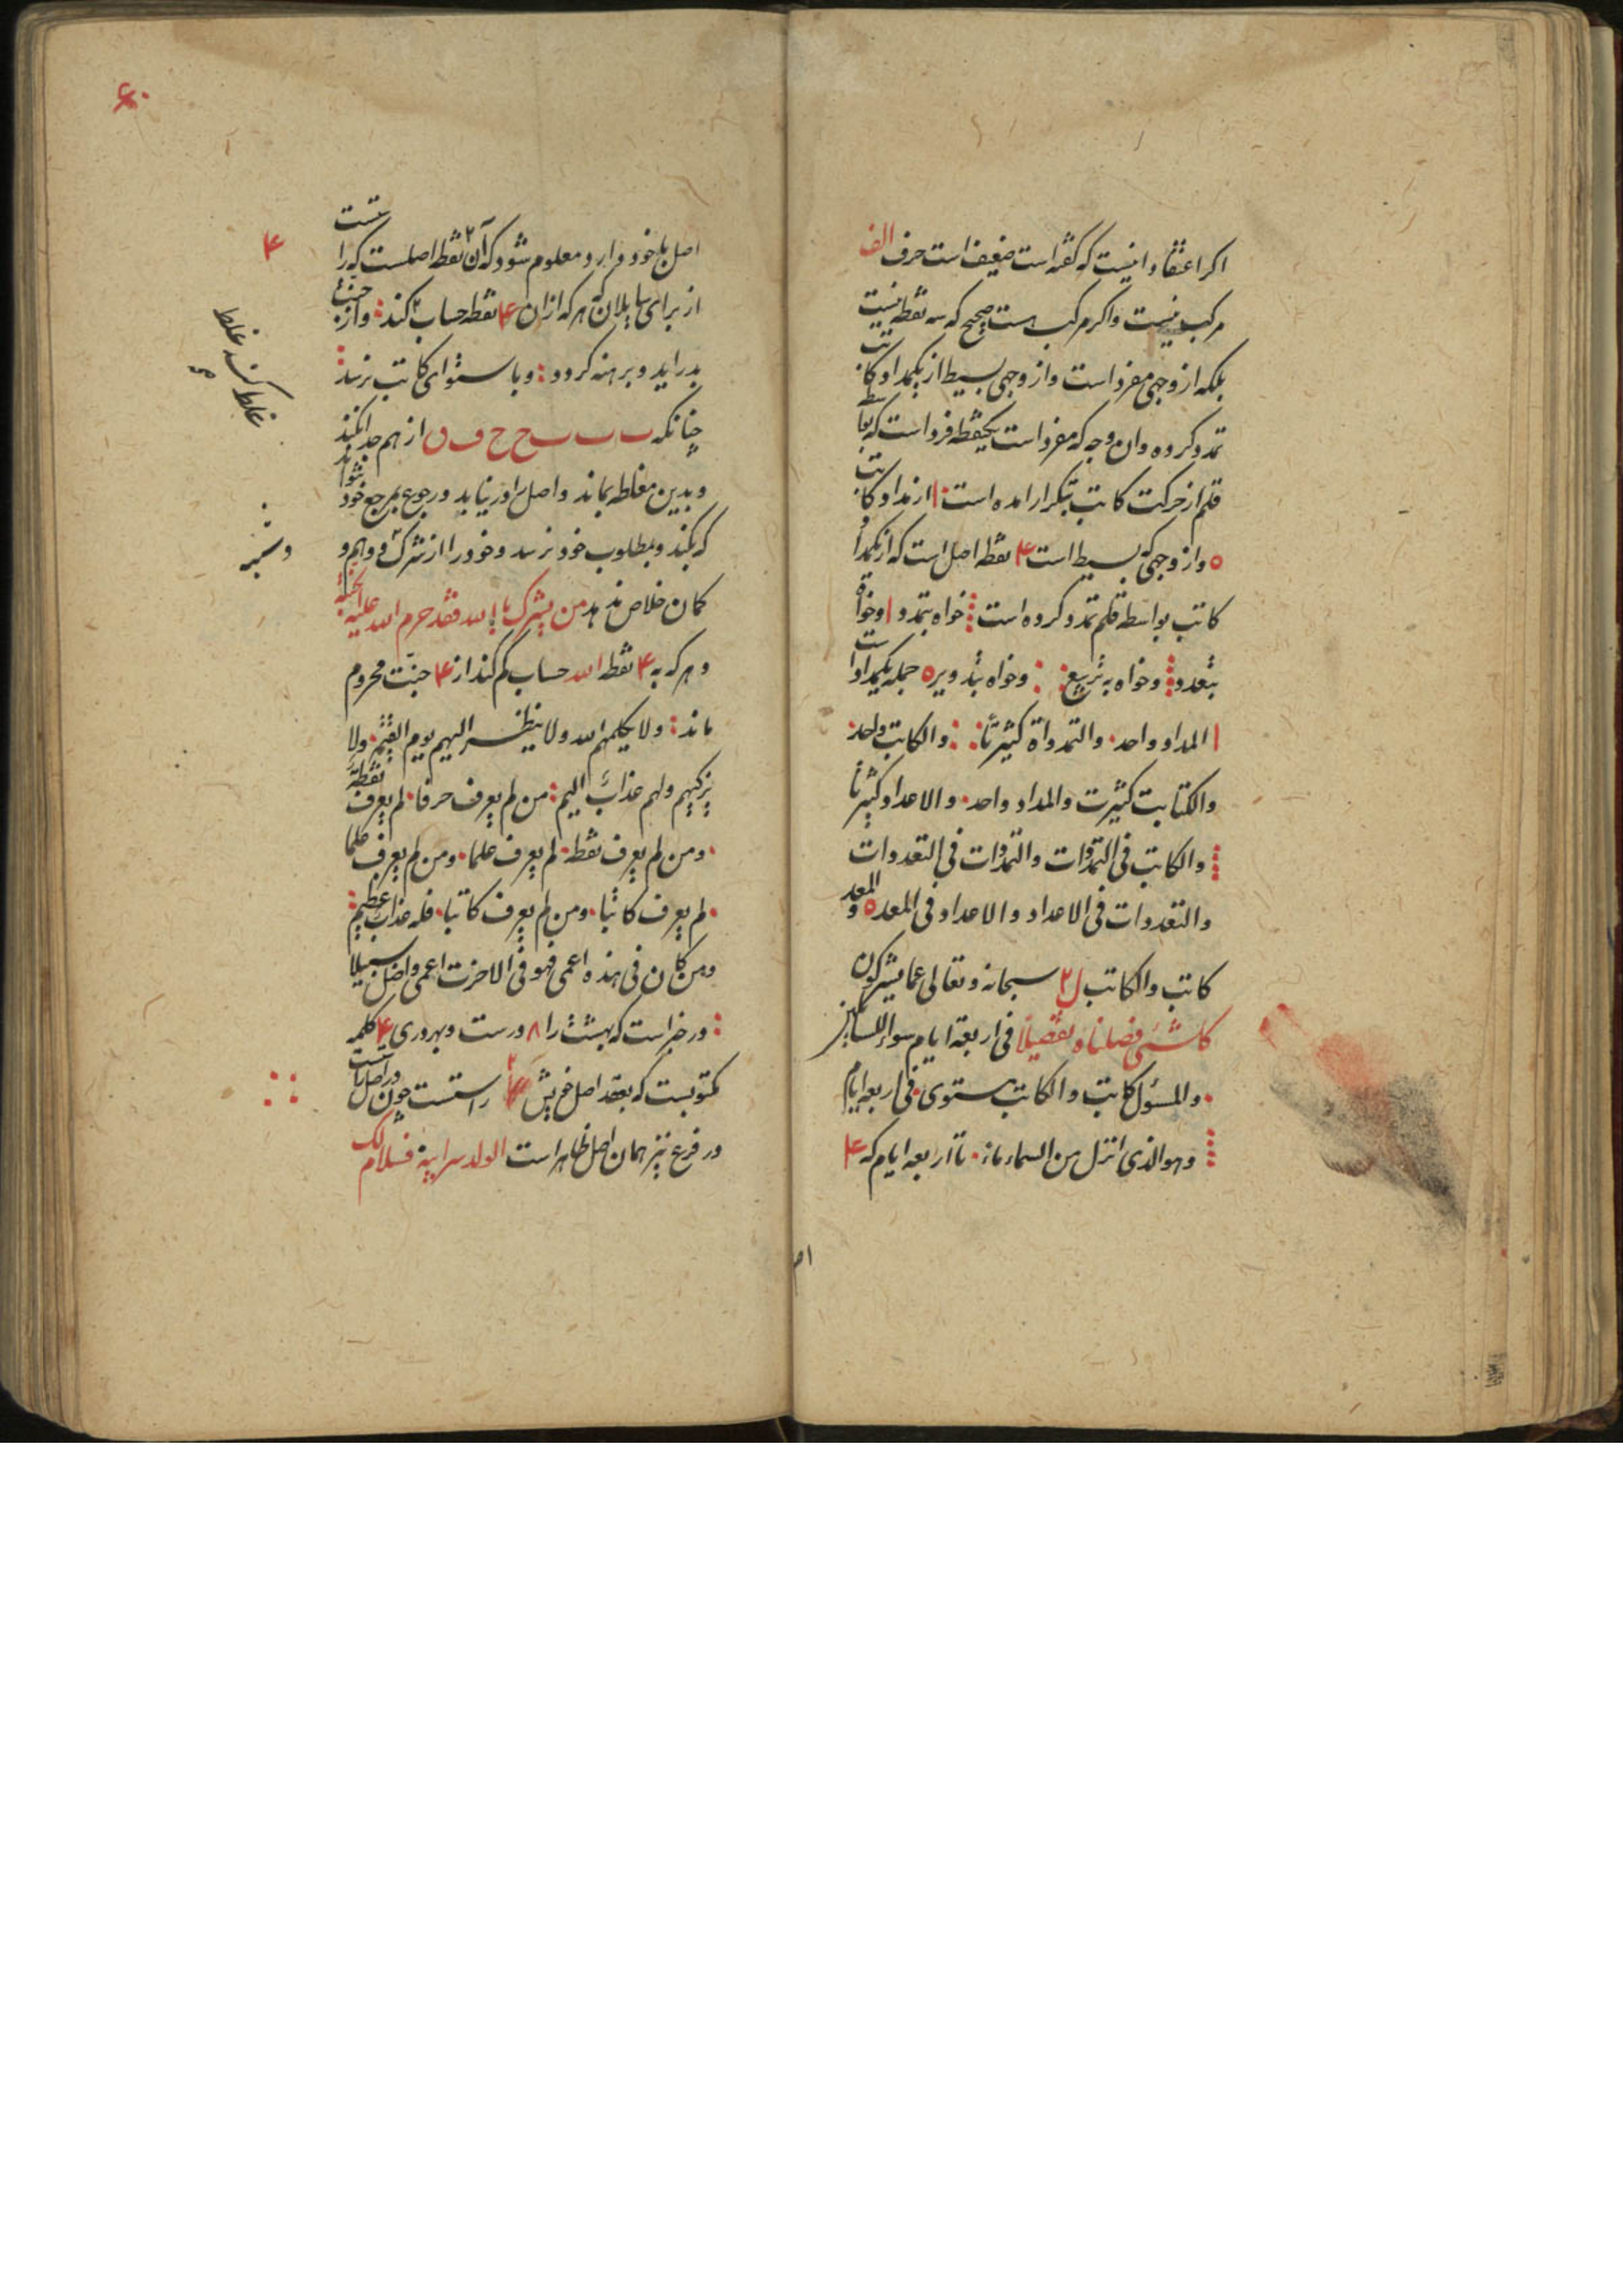 اکر اعتقاد اینست که کفته است ضعیف است حرف الف
مرکب نیست واکر مرکب هست صحیح که سه نقطه نیست
بلکه از وجهی مفرد است واز وجهی بسیط از یکمداد کاتب
تمدد کرده وان وجه که مفرد است یکنقطه فرد است که بواسطه
قلم از حرکت کاتب بتکرار امده است ⁞ ا از مداد کاتب
ه واز وجهی که بسیط است ۴ نقطه اصل است که از یکمداد
کاتب بواسطه قلم تمدد کرده است ⁞ خواه بتمدد ا وخواه
بتعدد ⁞ وخواه به تربیع :: وخواه بتدویر ه جمله یکمداد است
ا المداد واحد · والتمدداة کثیرتا :: والکاتب واحد
والکتابت کثیرت والمداد واحد · والاعداد کثیرتا
⁞ والکاتب فی التمددات والتمددات فی التعددات
والتعددات فی الاعداد والاعداد فی المعد ه والمعد
کاتب والکاتب ل۲ سبحانه وتعالی عما یشرکون
کل شیء فصلناه تفصیلا فی اربعة ایام سواء للسائلین
· والمسؤل کاتب والکاتب مستوی · فی اربعه ایام
⁞ وهو الذی انزل من السماء ماء · تا اربعه ایام که ۴
اص
۶۰
اصل باخود دارد ومعلوم شود که آن ۲ نقطه اصلست که راست
۴
از برای سایلان که هر که از ان ۴ نقطه حساب کم کند : واز جنت
بدر اید وبرهنه کردد : وباستوای کاتب نرسد :
غلط کند غلط
چنانکه ب ب ب ح ح ف ں از هم جدا کند
وبدین مغلطه بماند واصل را در نیابد ورجوع بمرجع خود نتواند
که بکند وبمطلوب خود نرسد وخود را از شرک ودوهم و
وشبه
کمان خلاص ندهد من یشرک بالله فقد حرم الله علیه الجنة
وهر که به ۴ نقطه الله حساب کم کند از ۴ جنت محروم
ماند : ولا یکلمهم الله ولا ینظر الیهم یوم القیمة ولا
یزکیهم ولهم عذاب الیم : من لم یعرف حرفا · لم یعرف نقطة
· ومن لم یعرف نقطة · لم یعرف علما · ومن لم یعرف علما
· لم یعرف کاتبا · ومن لم یعرف کاتبا · فله عذاب عظیم :
ومن کان فی هذه اعمی فهو فی الاخرت اعمی واضل سبیلا
: در خبر است که بهشت را ۸ درست وبهر دری ۴ کلمه
مکتوبست که بعقد اصل خویش ۴ راستست چون در اصل راست
در فرع نیز همان اصل ظاهر است الولد سر ابیه فسلام لک